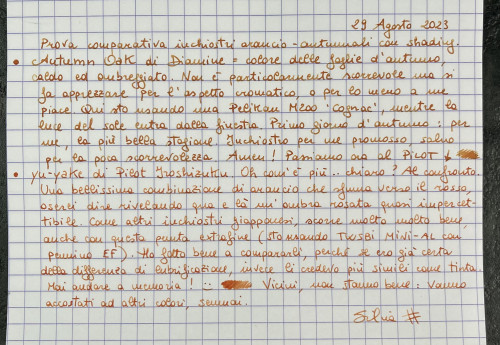 29 Agosto 2023
Prova comparativa inchiostri arancio-autunnali con shading.
• Autumn Oak di Diamine = colore delle foglie d'autunno,
caldo ed ombreggiato. Non è particolarmente scorrevole ma si
fa apprezzare per l'aspetto cromatico, o per lo meno a me
piace. Qui sto usando una Pelikan M200 "Cognac", mentre la
luce del sole entra dalla finestra. Primo giorno d'autunno: per
me, la più bella stagione. Inchiostro per me promosso, salvo
per la poca scorrevolezza. Amen! Passiamo ora al Pilot ↓
• yu-yake di Pilot Iroshizuku. Oh com'è più... chiaro? Al confronto.
Una bellissima combinazione di arancio che sfuma verso il rosso,
oserei dire rivelando qua e là un'ombra rosata quasi impercet-
tibile. Come altri inchiostri giapponesi, scorre molto molto bene,
anche con questa punta extrafine (sto usando TWSBI Mini-AL con
pennino EF). Ho fatto bene a compararli, perché se ero già certa
della differenza di lubrificazione, invece li credevo più simili come tinta.
Mai andare a memoria! Vicini, non stanno bene: vanno
accostati ad altri colori, semmai.
Silvia